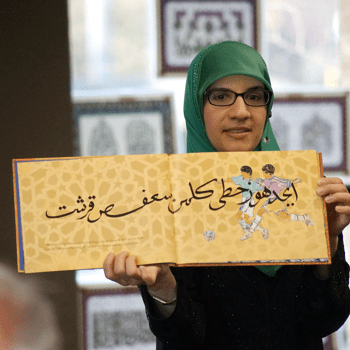 ابجد هوز حطي كلمن سعفص قرشت